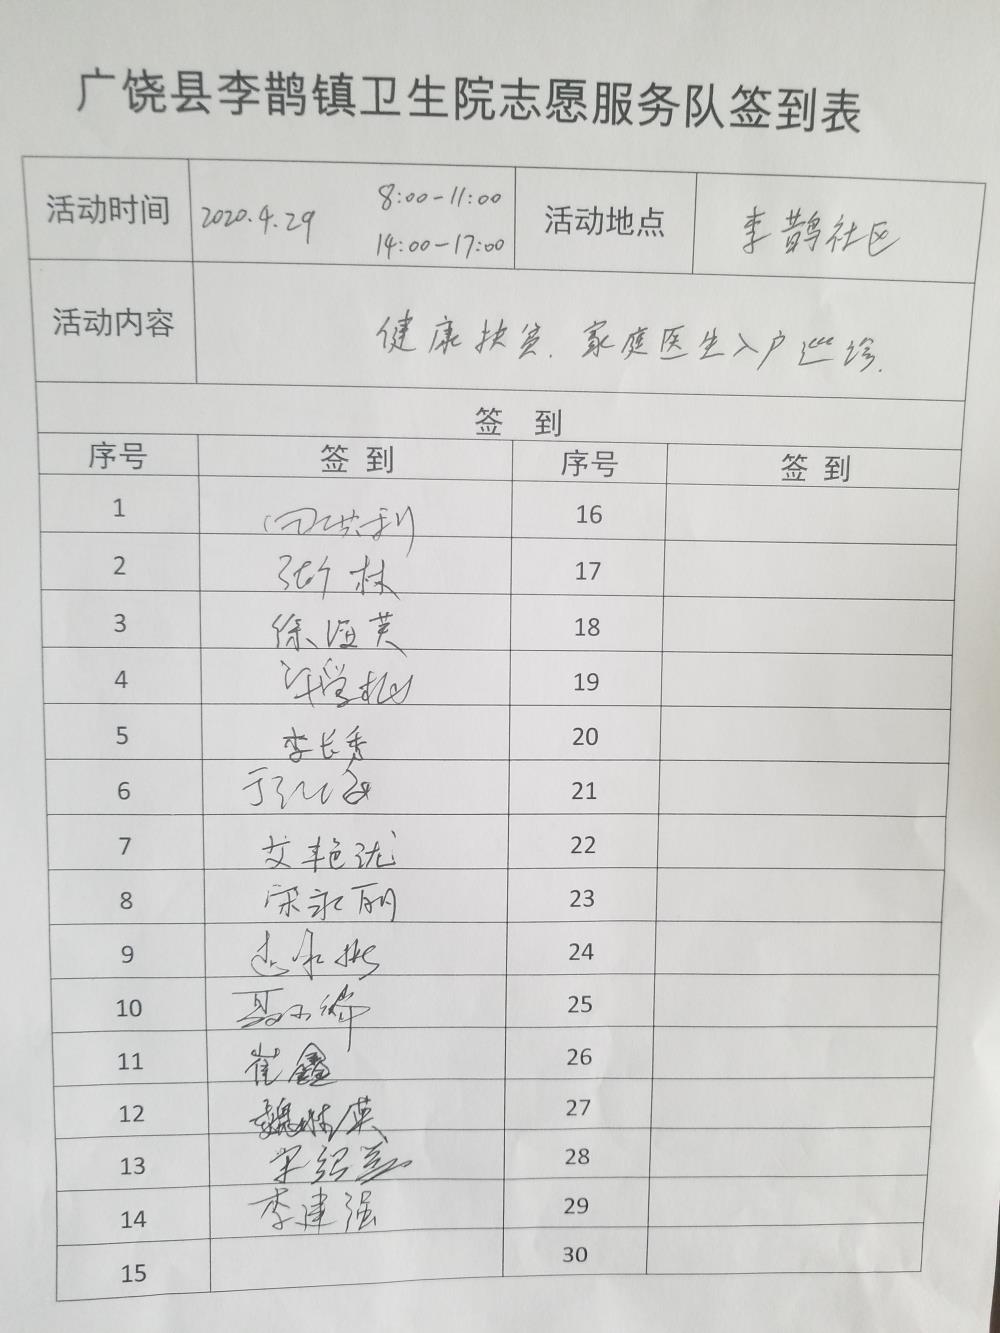 广饶县李鹊镇卫生院志愿服务队签到表
活动时间 2020.4.29 8:00-11:00 14:00-17:00 活动地点 李鹊社区
活动内容 健康扶贫、家庭医生入户巡诊.
签 到
序号 签到 序号 签到
1 16
2 林 17
3 徐 英 18
4 许学 19
5 李长秀 20
6 于 21
7 艾艳 22
8 宋永丽 23
9 永 24
10 聂 25
11 崔鑫 26
12 魏 英 27
13 宋绍 28
14 李建强 29
15 30